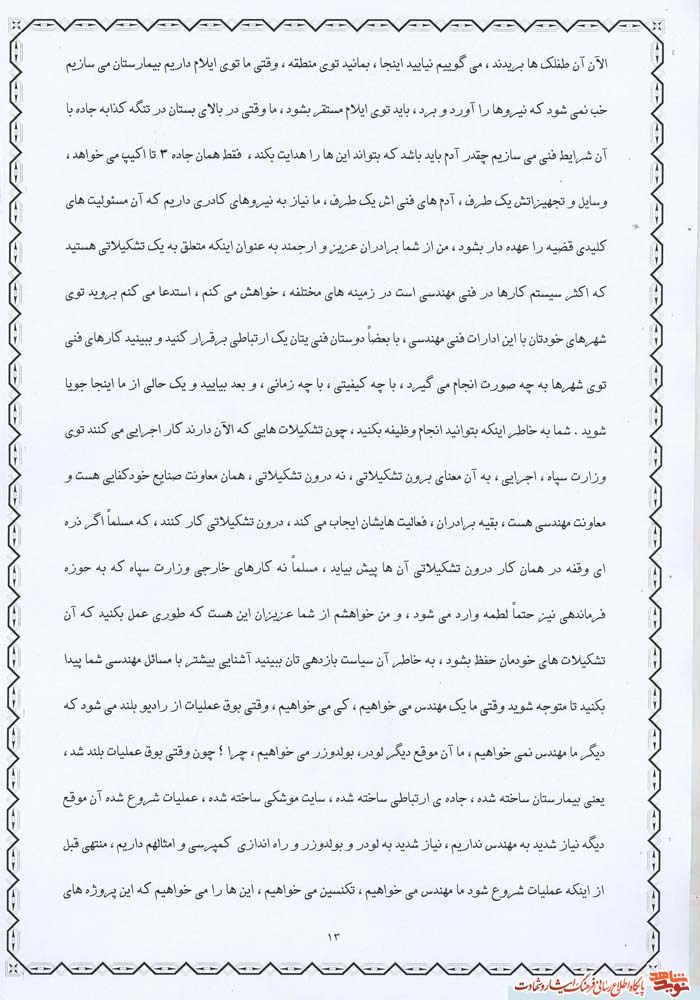 الآن آن طفلک ها بریدند ، می گوییم نیایید اینجا ، بمانید توی منطقه ، وقتی ما توی ایلام داریم بیمارستان می سازیم
خب نمی شود که نیروها را آورد و برد ، باید توی ایلام مستقر بشود ، ما وقتی در بالای بستان در تنگه کذابه جاده با
آن شرایط فنی می سازیم چقدر آدم باید باشد که بتواند این ها را هدایت بکند ، فقط همان جاده ۳ تا اکیپ می خواهد ،
وسایل و تجهیزاتش یک طرف ، آدم های فنی اش یک طرف ، ما نیاز به نیروهای کادری داریم که آن مسئولیت های
کلیدی قضیه را عهده دار بشود ، من از شما برادران عزیز و ارجمند به عنوان اینکه متعلق به یک تشکیلاتی هستید
که اکثر سیستم کارها در فنی مهندسی است در زمینه های مختلفه ، خواهش می کنم ، استدعا می کنم بروید توی
شهرهای خودتان با این ادارات فنی مهندسی ، با بعضاً دوستان فنی یتان یک ارتباطی برقرار کنید و ببینید کارهای فنی
توی شهرها به چه صورت انجام می گیرد ، با چه کیفیتی ، با چه زمانی ، و بعد بیایید و یک حالی از ما اینجا جویا
شوید . شما به خاطر اینکه بتوانید انجام وظیفه بکنید ، چون تشکیلات هایی که الآن دارند کار اجرایی می کنند توی
وزارت سپاه ، اجرایی ، به آن معنای برون تشکیلاتی ، نه درون تشکیلاتی ، همان معاونت صنایع خودکفایی هست و
معاونت مهندسی هست ، بقیه برادران ، فعالیت هایشان ایجاب می کند ، درون تشکیلاتی کار کنند ، که مسلماً اگر ذره
ای وقفه در همان کار درون تشکیلاتی آن ها پیش بیاید ، مسلماً نه کارهای خارجی وزارت سپاه که به حوزه
فرماندهی نیز حتماً لطمه وارد می شود ، و من خواهشم از شما عزیزان این هست که طوری عمل بکنید که آن
تشکیلات های خودمان حفظ بشود ، به خاطر آن سیاست بازدهی تان ببینید آشنایی بیشتر با مسائل مهندسی شما پیدا
بکنید تا متوجه شوید وقتی ما یک مهندس می خواهیم ، کی می خواهیم ، وقتی بوق عملیات از رادیو بلند می شود که
دیگر ما مهندس نمی خواهیم ، ما آن موقع دیگر لودر، بولدوزر می خواهیم ، چرا ؟ چون وقتی بوق عملیات بلند شد ،
یعنی بیمارستان ساخته شده ، جاده ی ارتباطی ساخته شده ، سایت موشکی ساخته شده ، عملیات شروع شده آن موقع
دیگه نیاز شدید به مهندس نداریم ، نیاز شدید به لودر و بولدوزر و راه اندازی کمپرسی و امثالهم داریم ، منتهی قبل
از اینکه عملیات شروع شود ما مهندس می خواهیم ، تکنسین می خواهیم ، این ها را می خواهیم که این پروژه های
۱۳
نوید شاهد پایگاه اطلاع رسانی فرهنگ ایثار و شهادت